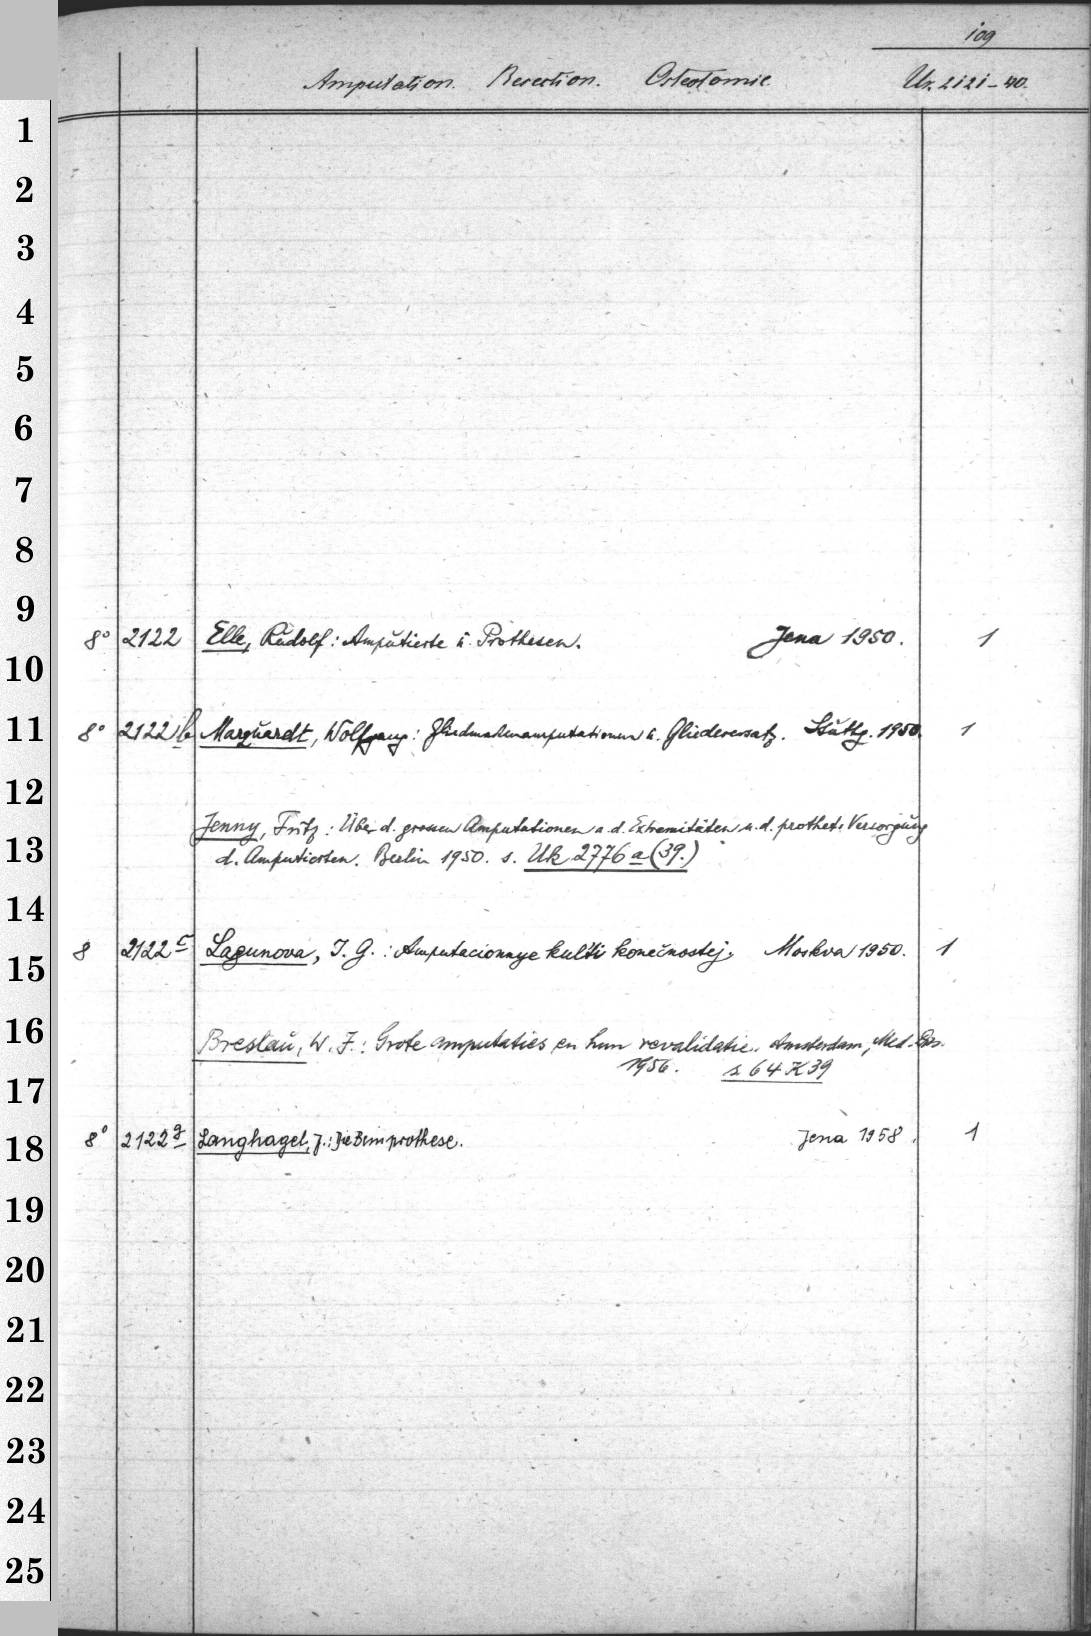 109
Amputation. Resection. Osteotomie Us. 2121-40.
1
2
3
4
5
6
7
8
9
8° 2122 Elle, Rudolf: Amputierte u. Prothesen. Jena 1950. 1
10
11 8° 2122 b Marquardt, Wolfgang: Gliedmaßenamputationen u. Gliederersatz. Stuttg. 1950. 1
12
Jenny, Fritz: Über d. grossen Amputationen a. d. Extremitäten u. d. prothet. Versorgung
13 d. Amputierten. Berlin 1950. s. Uk 2776 a (39.)
14
15 8 2122 c Lagunova, I. G.: Amputacionnye kul'ti konečnostej. Moskva 1950. 1
16 Breslau, W. F.: Grote amputaties en hun revalidatie. Amsterdam, Med.
17 1956. s 64 K 39
18 8° 2122 g Langhagel, J.: Die Beinprothese. Jena 1958. 1
19
20
21
22
23
24
25